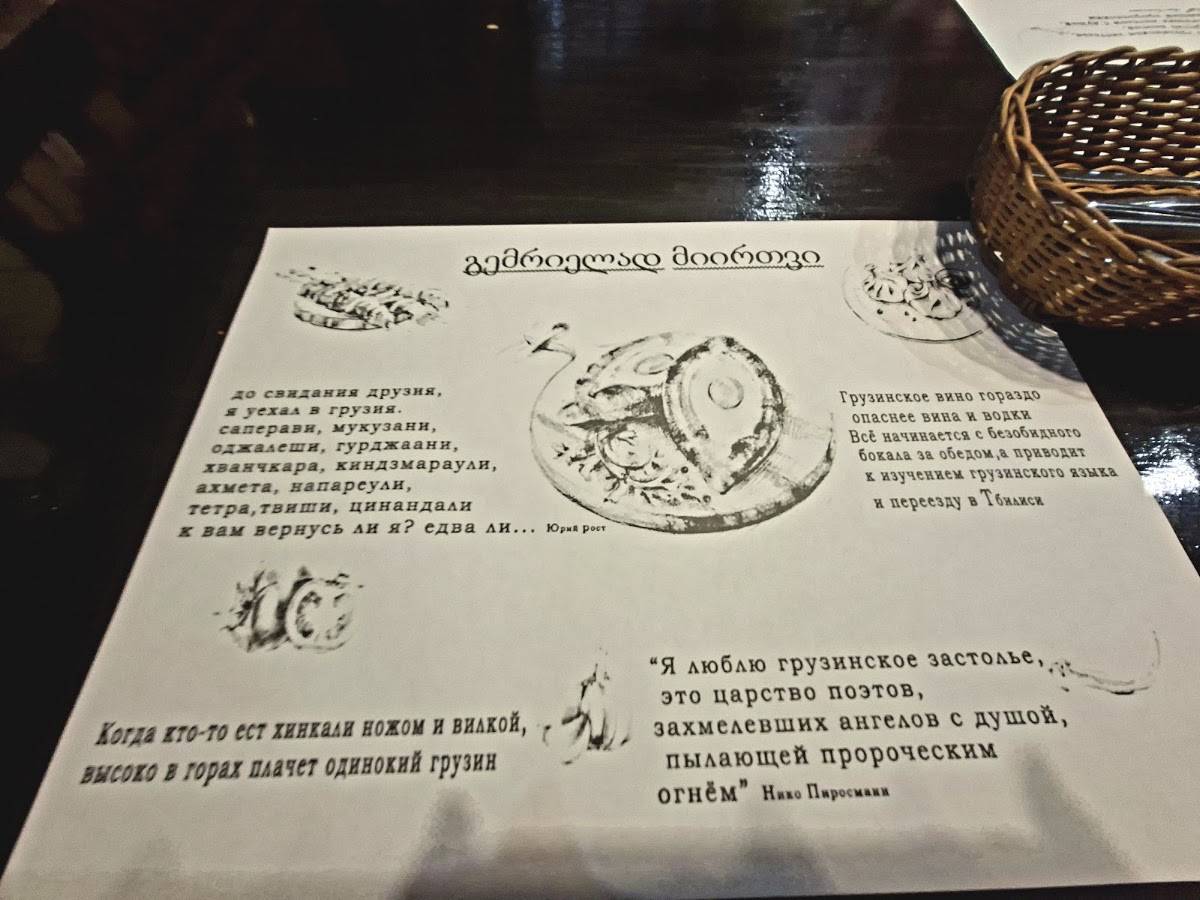 გემრიელად მიირთვი
до свидания друзия,
я уехал в грузия.
саперави, мукузани,
оджалеши, гурджаани,
хванчкара, киндзмараули,
ахмета, напареули,
тетра,твиши, цинандали
к вам вернусь ли я? едва ли... Юрий рост
Грузинское вино гораздо
опаснее вина и водки
Всё начинается с безобидного
бокала за обедом,а приводит
к изучением грузинского языка
и переезду в Тбилиси
Когда кто-то ест хинкали ножом и вилкой,
высоко в горах плачет одинокий грузин
“Я люблю грузинское застолье,
это царство поэтов,
захмелевших ангелов с душой,
пылающей пророческим
огнём” Нико Пиросмани